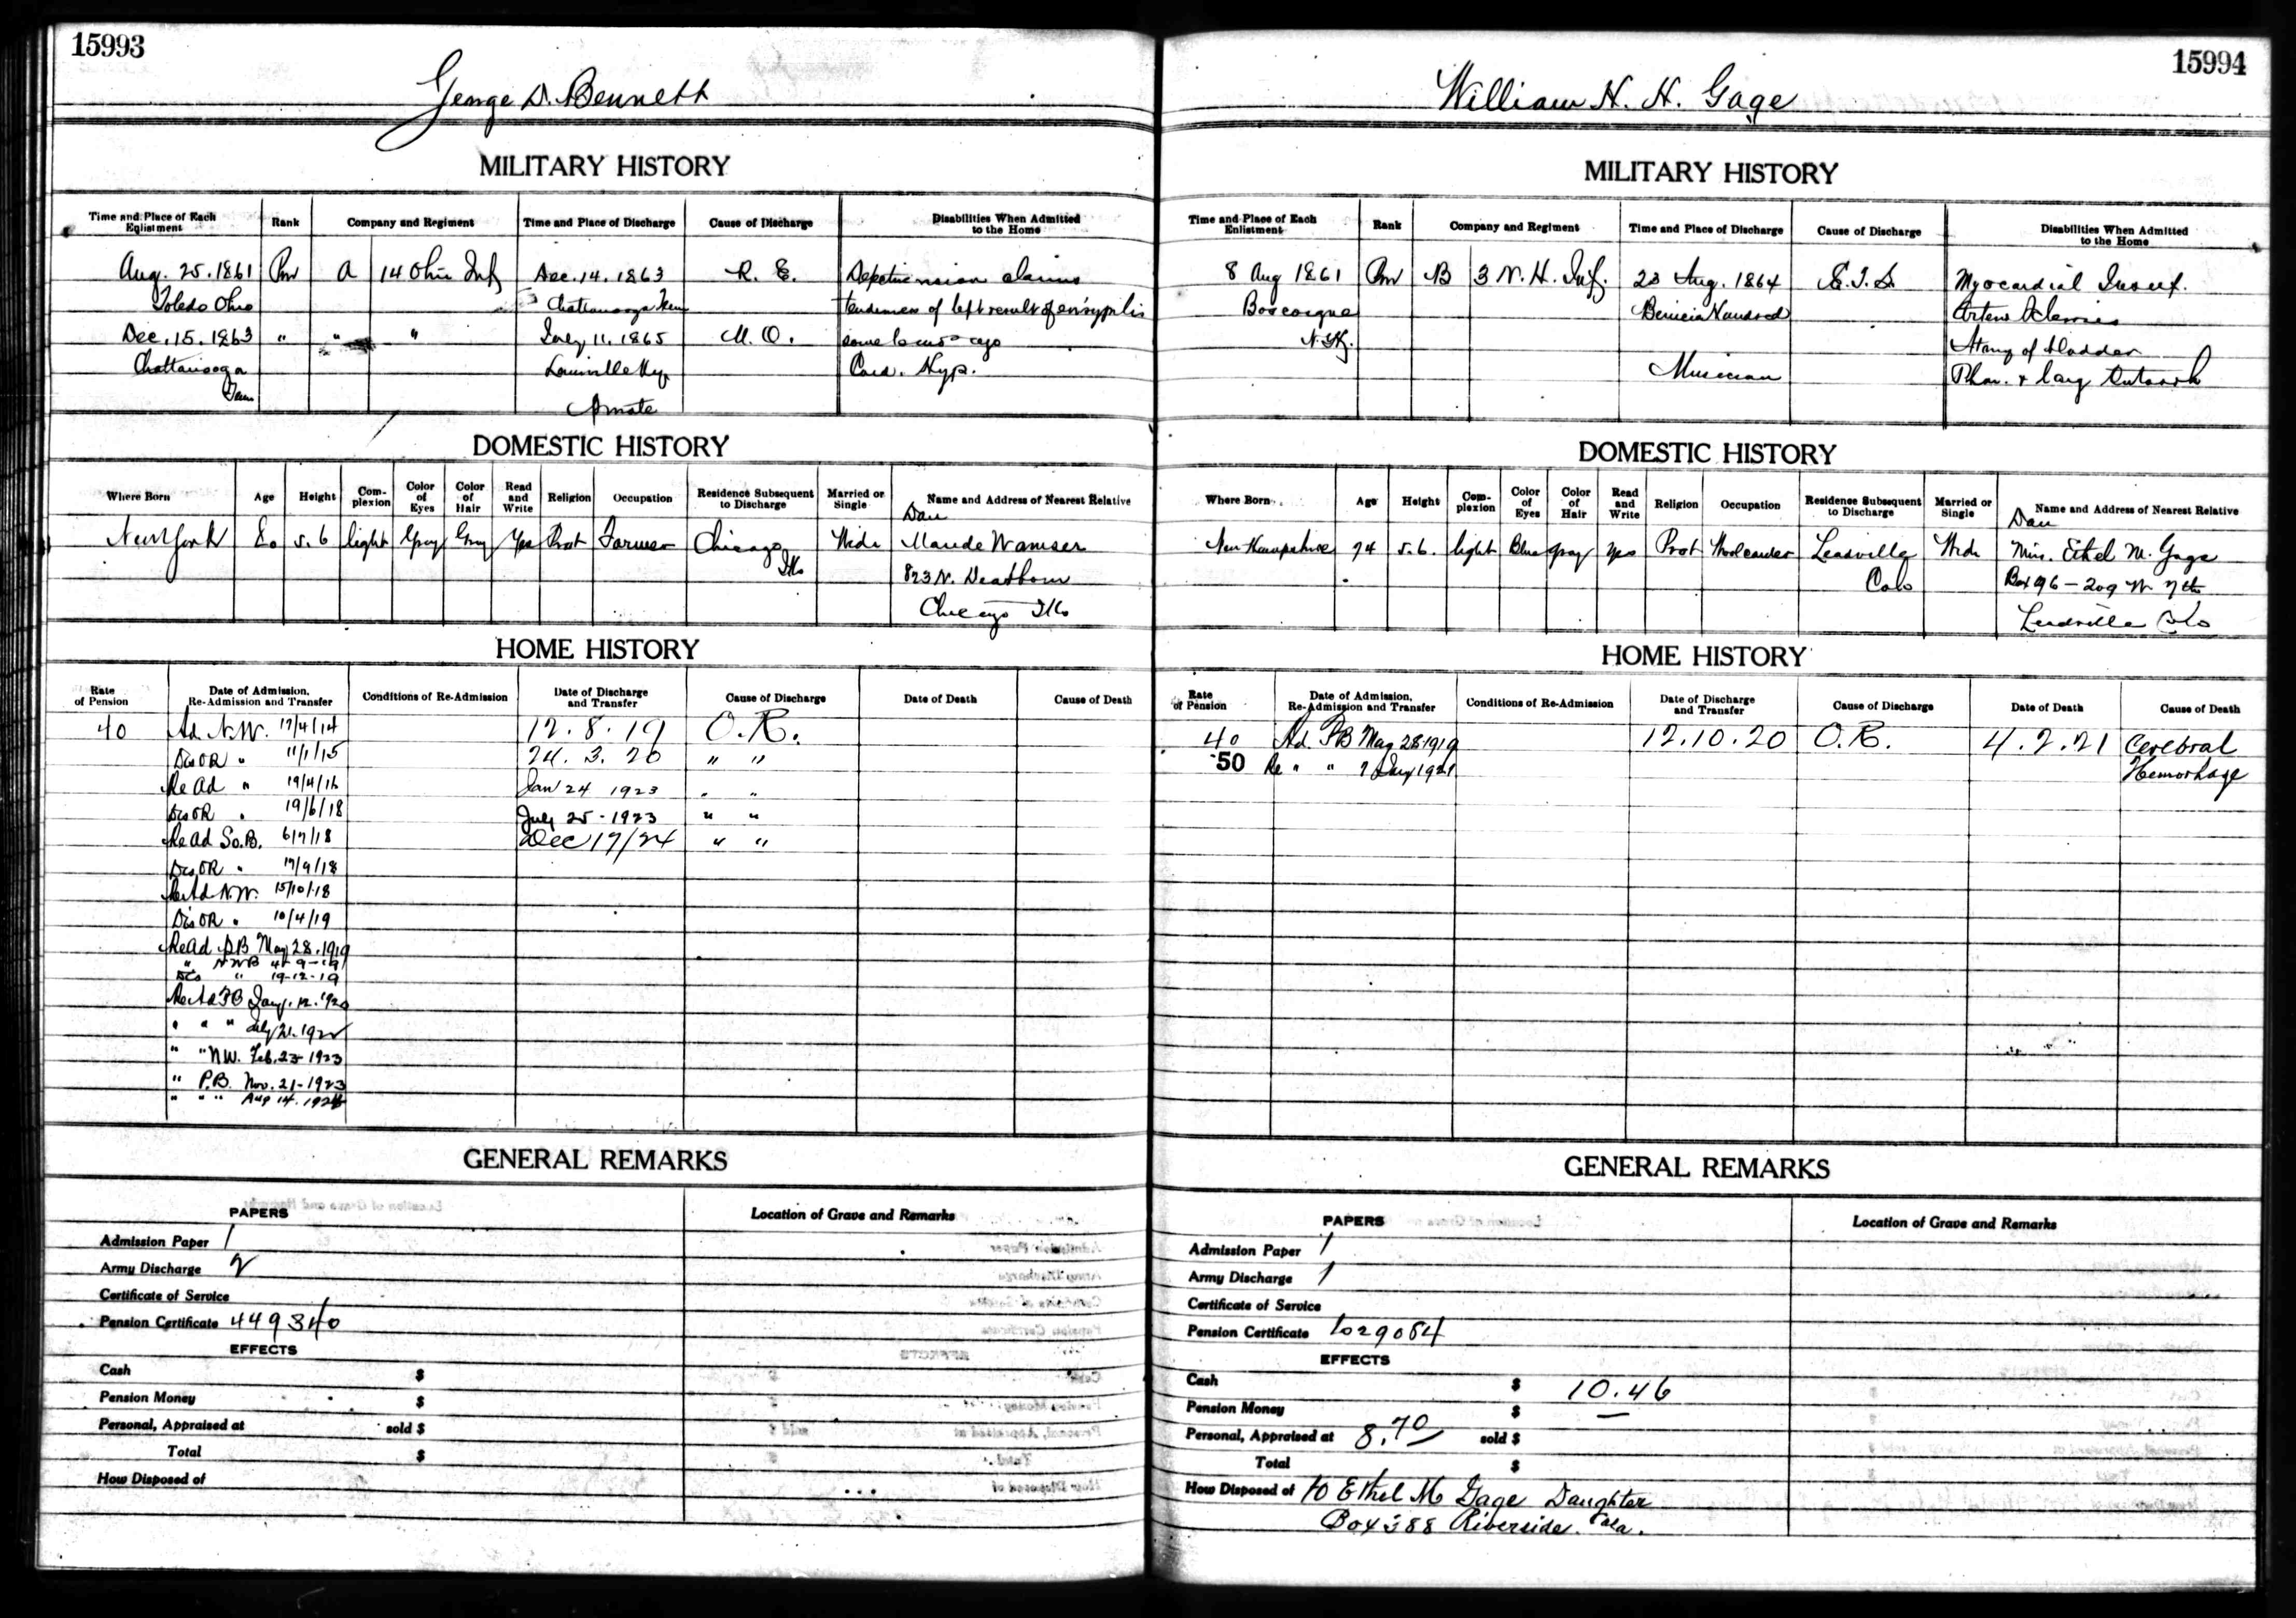 15993
George D. Bennett
MILITARY HISTORY
Time and Place of Each Enlistment
Rank
Company and Regiment
Time and Place of Discharge
Cause of Discharge
Disabilities When Admitted to the Home
Aug. 25. 1861 A 14 Ohio Inf Dec. 14. 1863 R. E. claims
Toledo Ohio Chattanooga Tenn of left result of
Dec. 15. 1863 " " " July 11. 1865 M. O. some ago
Chattanooga Louisville Ky. Card. Hyp.
Tenn
DOMESTIC HISTORY
Where Born
Age
Height
Com-plexion
Color of Eyes
Color of Hair
Read and Write
Religion
Occupation
Residence Subsequent to Discharge
Married or Single
Name and Address of Nearest Relative
Dau
New York 5.6 light Gray Gray Yes Prot Farmer Chicago Wid Maude
Ills 823 N. Dearborn
Chicago Ills
HOME HISTORY
Rate of Pension
Date of Admission, Re-Admission and Transfer
Conditions of Re-Admission
Date of Discharge and Transfer
Cause of Discharge
Date of Death
Cause of Death
40 Ad. N.W. 17/4/14 12.8.19 O.R.
Dis OR " 11/1/15 24.3.20 " "
Re Ad " 19/4/16 Jan 24 1923 " "
Dis OR " 19/6/18 July 25-1923 " "
Re Ad So.B. 6/7/18 Dec 17/24 " "
Dis OR " 17/9/18
Re Ad N.W. 15/10/18
Dis OR " 10/4/19
Re Ad P.B May 28.1919
" NWB 4-9-19
Dis " 19-12-19
Re Ad PB Jany. 12. 1920
" " " July 21. 1922
" " N.W. Feb. 23-1923
" P.B. Nov. 21-1923
" " " Aug 14. 1924
GENERAL REMARKS
PAPERS
Location of Grave and Remarks
Admission Paper 1
Army Discharge 2
Certificate of Service
Pension Certificate 449340
EFFECTS
Cash $
Pension Money $
Personal, Appraised at sold $
Total $
How Disposed of
15994
William H. H. Gage
MILITARY HISTORY
Time and Place of Each Enlistment
Rank
Company and Regiment
Time and Place of Discharge
Cause of Discharge
Disabilities When Admitted to the Home
8 Aug 1861 B 3 N. H. Inf. 23 Aug. 1864 E.T.S. Myocardial Insuf.
Arterio
Atony of bladder
Musician Phar. & Lary Catarrh
DOMESTIC HISTORY
Where Born
Age
Height
Com-plexion
Color of Eyes
Color of Hair
Read and Write
Religion
Occupation
Residence Subsequent to Discharge
Married or Single
Name and Address of Nearest Relative
Dau
New Hampshire 74 5.6. light Blue gray yes Prot Leadville Wid Miss. Ethel M. Gage
Colo Box 96 - 209 W. 7th
Leadville Colo
HOME HISTORY
Rate of Pension
Date of Admission, Re-Admission and Transfer
Conditions of Re-Admission
Date of Discharge and Transfer
Cause of Discharge
Date of Death
Cause of Death
40 Ad. PB May 28 1919 12.10.20 O.R. 4.2.21 Cerebral
50 Re " " 7 Jany 1921 Hemorhage
GENERAL REMARKS
PAPERS
Location of Grave and Remarks
Admission Paper 1
Army Discharge 1
Certificate of Service
Pension Certificate 1029064
EFFECTS
Cash $ 10.46
Pension Money $ —
Personal, Appraised at 8.70 sold $
Total $
How Disposed of to Ethel M Gage Daughter
Box 588 Riverside. Cala.